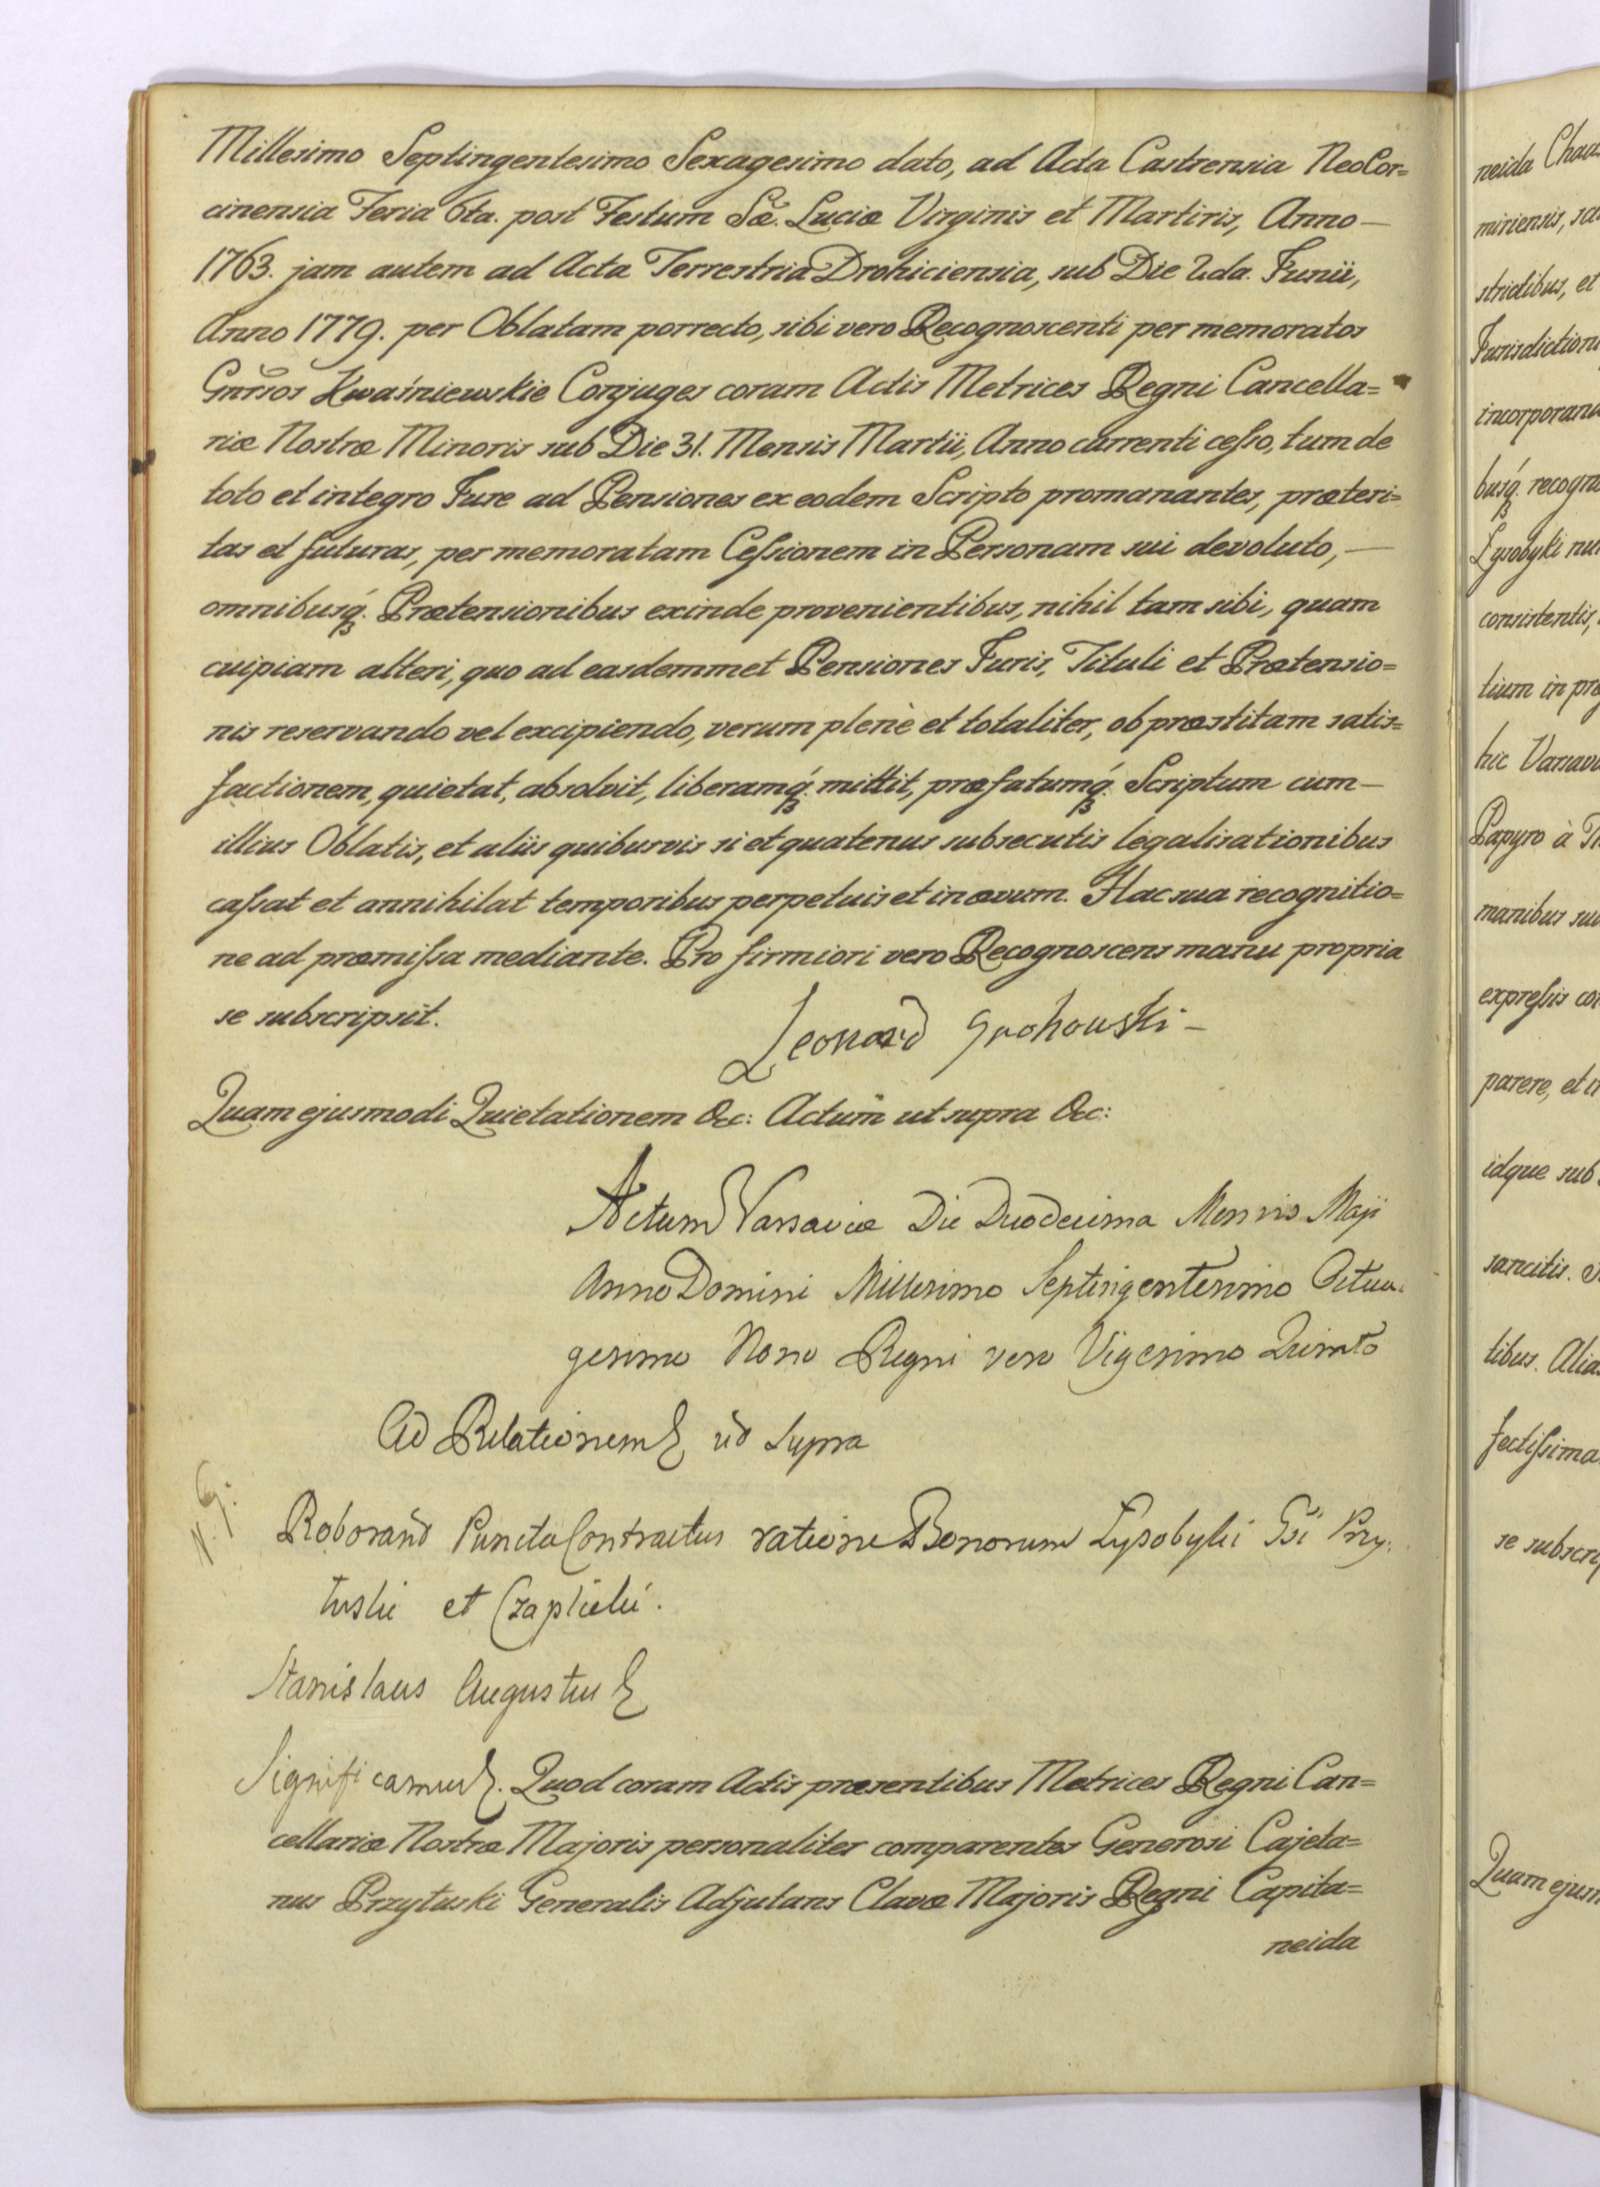 Millesimo Septingentesimo Sexagesimo dato, ad Acta Castrensia NeoCor=
cinensia Feria 6ta. post Festum Sæ. Luciæ Virginis et Martiris, Anno —
1763. jam autem ad Acta Terrestria Drohiciensia, sub Die 2da. Junii,
Anno 1779. per Oblatam porrecto, sibi vero Recognoscenti per memoratos
Gnrsos Kwaśniewskie Conjuges coram Actis Metrices Regni Cancella=
riæ Nostræ Minoris sub Die 31. Mensis Martii, Anno currenti cesso, tum de
toto et integro Jure ad Pensiones ex eodem Scripto promanantes, præteri=
tas et futuras, per memoratam Cessionem in Personam sui devoluto, —
omnibusq́. Prætensionibus exinde provenientibus, nihil tam sibi, quam
cuipiam alteri, quo ad easdemmet Pensiones Juris, Tituli et Prætensio=
nis reservando vel excipiendo, verum plenè et totaliter, ob præstitam satis=
factionem, quietat, absolvit, liberamq́. mittit, præfatumq́. Scriptum cum —
illius Oblatis, et aliis quibusvis si et quatenus subsecutis legalisationibus
cassat et annihilat temporibus perpetuis et in ævum. Hac sua recognitio=
ne ad præmissa mediante. Pro firmiori vero Recognoscens manu propria
se subscripsit.
Leonard Grohowski —
Quam ejusmodi Quietationem &c: Actum̃ ut supra &c:
Actum Varsaviæ Die Duodecima Mensis Maji
Anno Domini Millesimo Septingentesimo Octua-
gesimo Nono Regni vero Vigesimo Quinto
Ad Relationem ut supra
N. G.
Roborand Puncta Contractus ratione Bonorum Lysobyki Gsi Przy-
tuski et Czaplicki.
Stanislaus Augustus
Significamus. Quod coram Actis præsentibus Metrices Regni Can=
cellariæ Nostræ Majoris personaliter comparentes Generosi Cajeta=
nus Przyłuski Generalis Adjutans Clavæ Majoris Regni Capita=
neida
neida
miriensis,
strictibus, et
incorporan
busq́.
Lysobyki
consistentis,
tium in
hic
Papyro à
manibus
expressis
parere, et
idque sub
sancitis.
tibus.
se